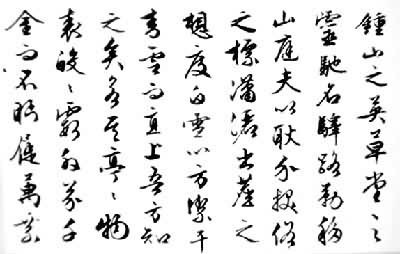 鍾山之英草堂之
靈馳名驛路勒移
山庭夫以耿介拔俗
之標瀟灑出塵之
想度白雪以方潔干
青雲而直上吾方知
之矣若其亭々物
表皎々霞外芥千
金而不盼屣萬乘